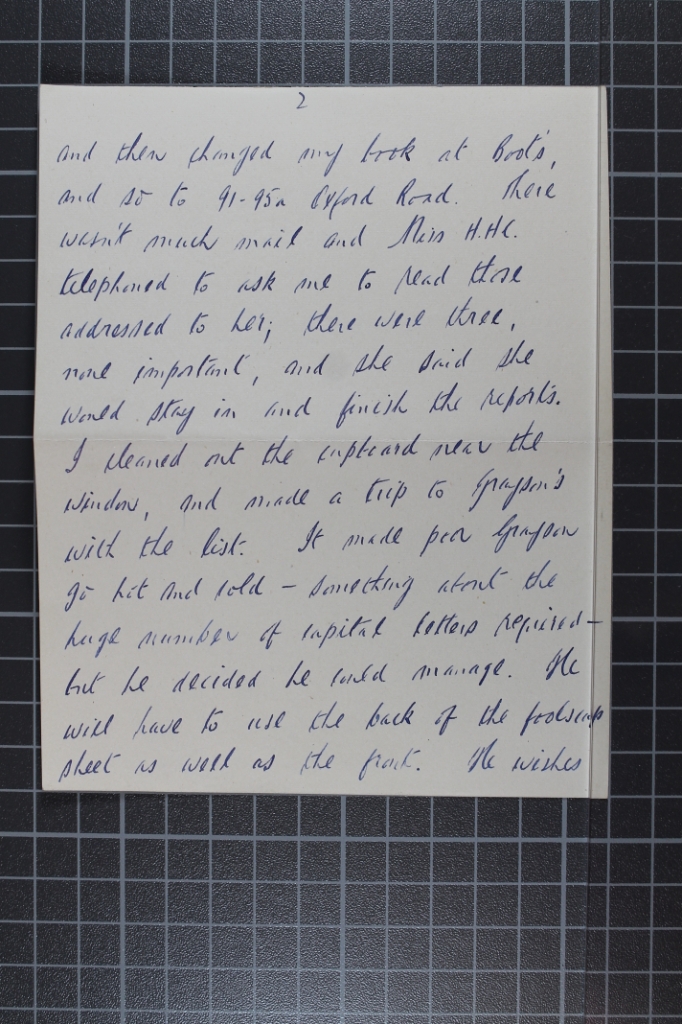 2
and then changed my book at Boot's,
and so to 91-95a Oxford Road. There
wasn't much mail and Miss H.HC.
telephoned to ask me to read those
addressed to her; there were three,
none important, and she said she
would stay in and finish the reports.
I cleaned out the cupboard near the
window, and made a trip to Grayson's
with the list. It made poor Grayson
go hot and cold – something about the
huge number of capital letters required –
but he decided he could manage. He
will have to use the back of the foolscap
sheet as well as the front. He wishes